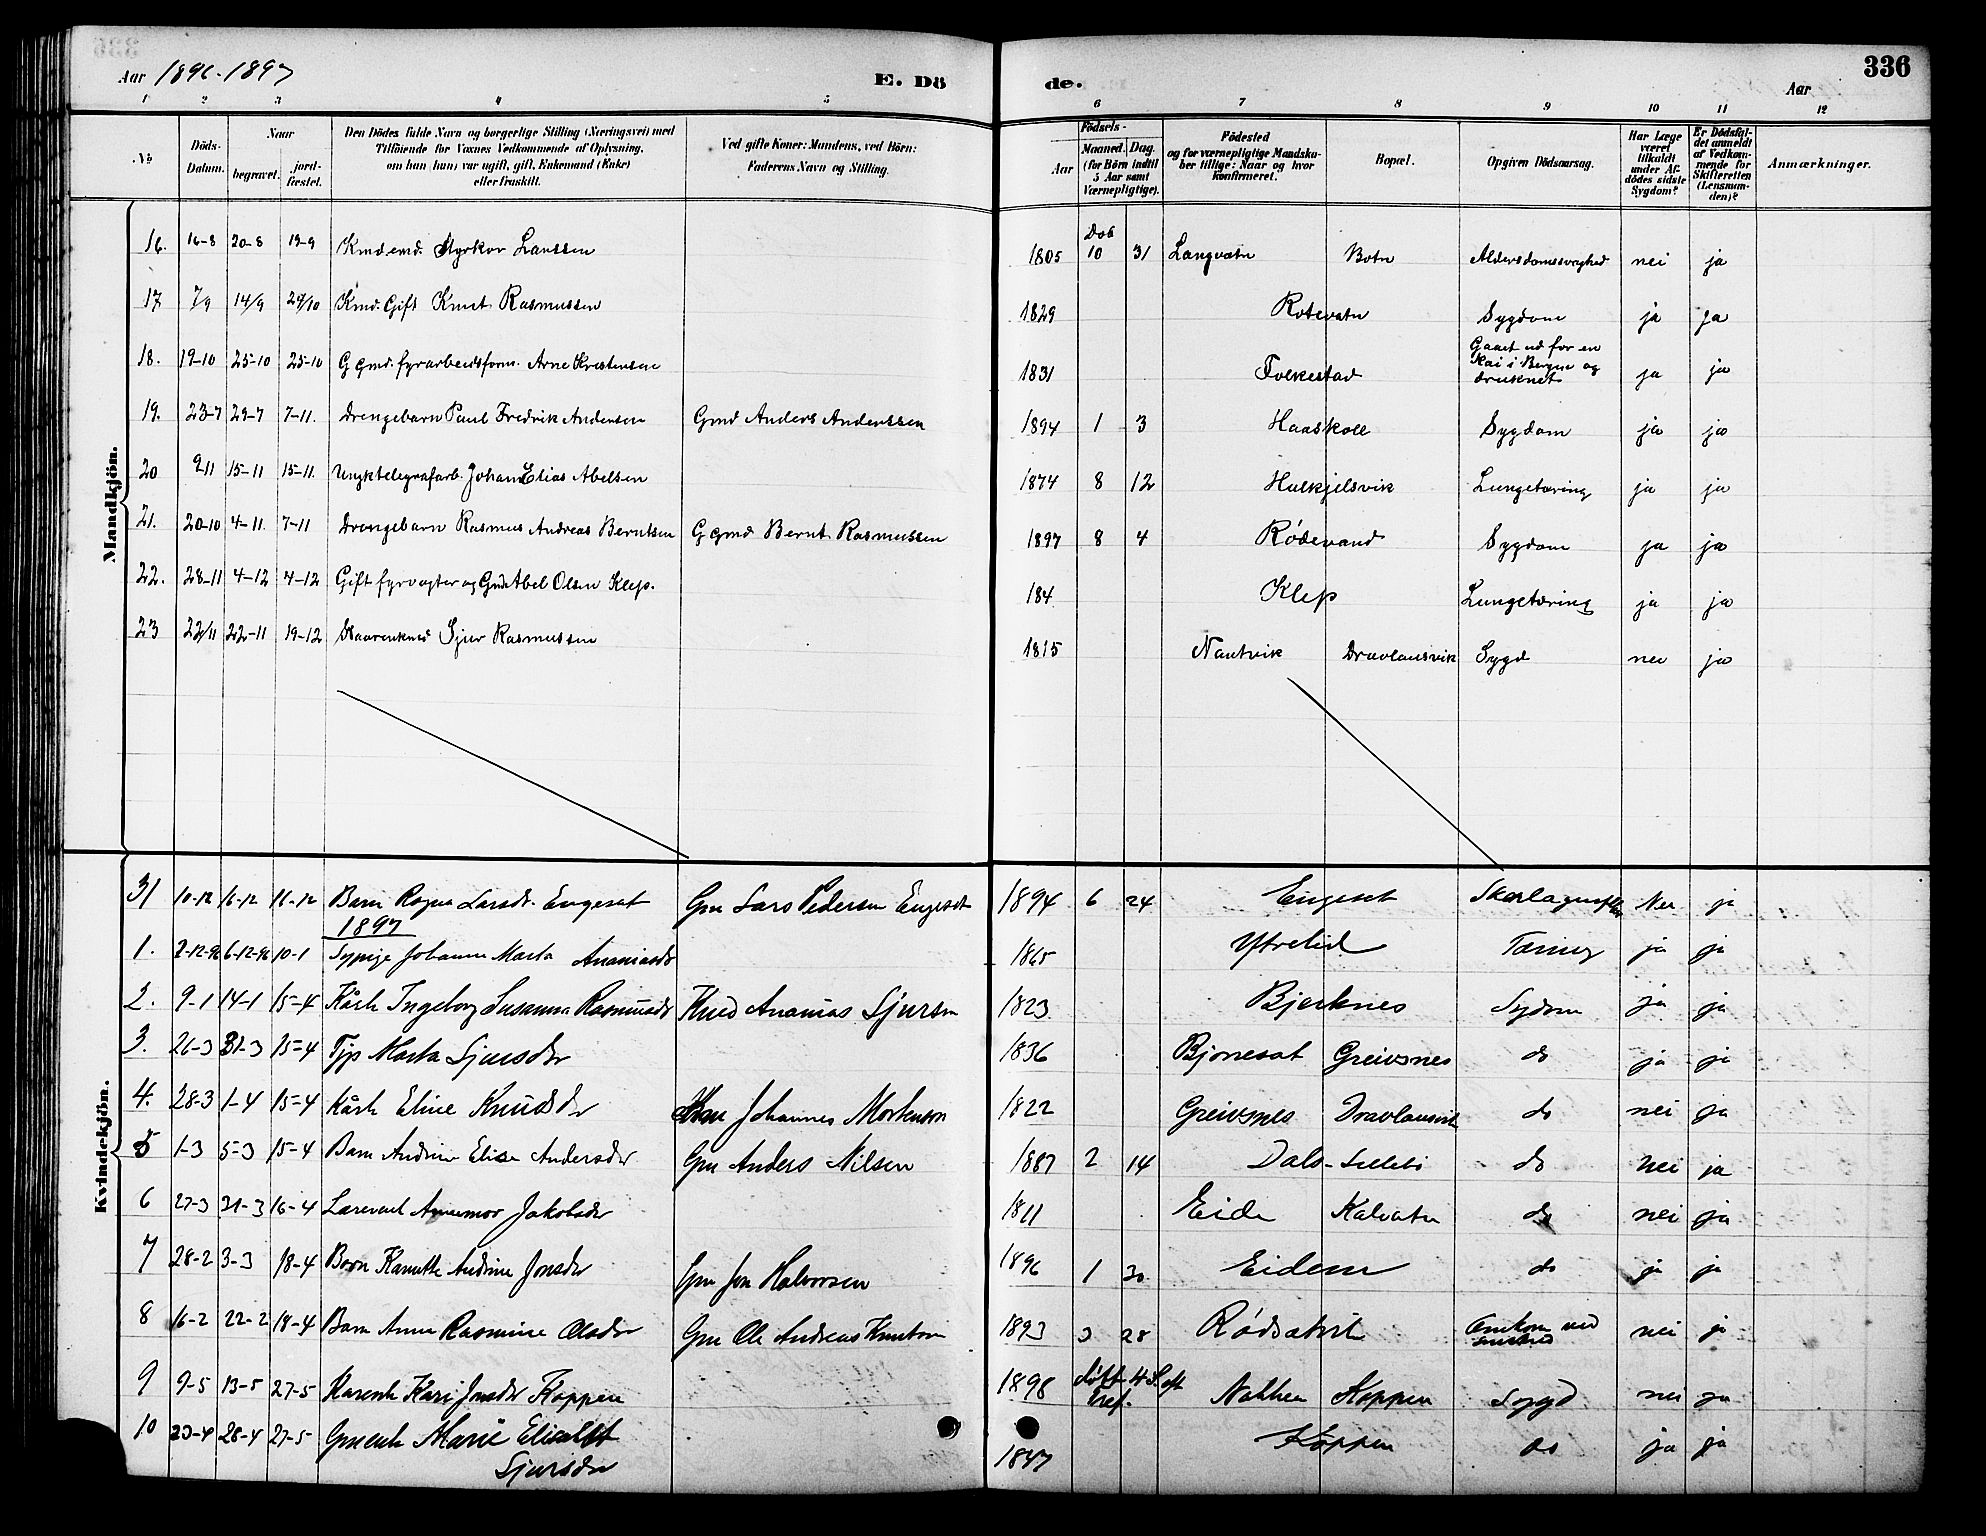 Aar 1896-1897 E. Döde. Aar 336
1 2 3 4 5 6 7 8 9 10 11 12
No
Döds-Datum.
Naar
begravet.
jordfæstet.
Den Dödes fulde Navn og borgerlige Stilling (Næringsvei) med
Tilföiende for Voxnes Vedkommende af Oplysning,
om han (hun) var ugift, gift, Enkemand (Enke)
eller fraskilt.
Ved gifte Koner: Mandens, ved Börn:
Faderens Navn og Stilling.
Födsels-
Aar
Maaned. Dag.
(for Börn indtil
5 Aar samt
Værnepligtige).
Födested
og for værnepligtige Mandskaber tillige: Naar og hvor
konfirmeret.
Bopæl.
Opgiven Dödsaarsag.
Har Læge
været
tilkaldt
under Afdödes sidste
Sygdom?
Er Dödsfaldet anmeldt
af Vedkommende for
Skifteretten
(Lensmanden)?
Anmærkninger.
Mandkjön.
16. 16-8 20-8 19-9 Kmd. emd. Styrkor Lanssen 1805 Döb 10 31 Langvatn Botn Aldersdomssvaghed nei ja
17 7/9 14/9 29/10 Kmd. Gift Knut Rasmussen 1829 Rotevatn Sygdom ja ja
18. 19-10 25-10 25-10 G gmd. fyrarbeidsform. Arne Kristensen 1831 Folkestad Gaaet ud for en Kai i Bergen og druknet ja ja
19. 23-7 29-7 7-11. Drengebarn Paul Fredrik Andersen Gmd Anders Anderssen 1894 1 3 Haaskoll Sygdom ja ja
20 9-11 15-11 15-11. Ungk telegrafarb. Johan Elias Abelsen 1874 8 12 Halkjelsvik Lungetæring ja ja
21. 20-10 4-11. 7-11 Drengebarn Rasmus Andreas Berntsen G gmd Bernt Rasmussen 1897 8 4 Rødevand Sygdom ja ja
22. 28-11 4-12 4-12 Gift fyrvogter og Gmd Abel Olsen Klep. 184 Klep Lungetæring ja ja
23 22/11 22-11 19-12 Kaarenkmd Sjur Rasmussen 1815 Nautvik Dravlausvik Sygd nei ja
Kvindekjön.
31 10-12 16-12 16-12 Barn Ragna Larsdr. Engeset Gm Lars Pedersen Engeset 1894 6 24 Engeset Nei ja
1897
1. 2-12-96 6-12-96 10-1 Johanne Marta Ananiasdr 1865 Ytrelid Tæring ja ja
2. 9-1 14-1 15-4 Kårk Ingeborg Susanna Rasmusdr Kued Ananias Sjursen 1823 Bjerknes Sygdom ja ja
3. 26-3 31-3 15-4 Tjp Marta Sjursdr 1836 Bjoneset Greivsnes do ja ja
4. 28-3 1-4 15-4 Kårk Eline Knudsdr Johannes Mortensen 1822 Greivsnes Dravlausvik do nei ja
5 1-3 5-3 15-4 Barn Andrine Elise Andersdr Gm Anders Nilsen 1887 2 14 Dals-Lillebö do nei ja
6 27-3 31-3 16-4 Annemor Jakobsdr 1811 Eide Kalvatn do nei ja
7 28-2 3-3 18-4 Barn Kanutte Andrine Jonsdr Gm Jon Halvorsen 1896 1 30 Eidem do ja ja
8 16-2 22-2 18-4 Barn Anne Rasmine Olsdr Gm Ole Andreas Knutsen 1893 3 28 Rødsætrk Omkom ved nei ja
9 9-5 13-5 27-5 Karenk Kari Jonsdr Koppen 1898 Nakken Koppen Sygd nei ja
10 23-4 28-4 27-5 Gmenk Marie Elisabet Sjursdr 1847 Koppen do ja ja